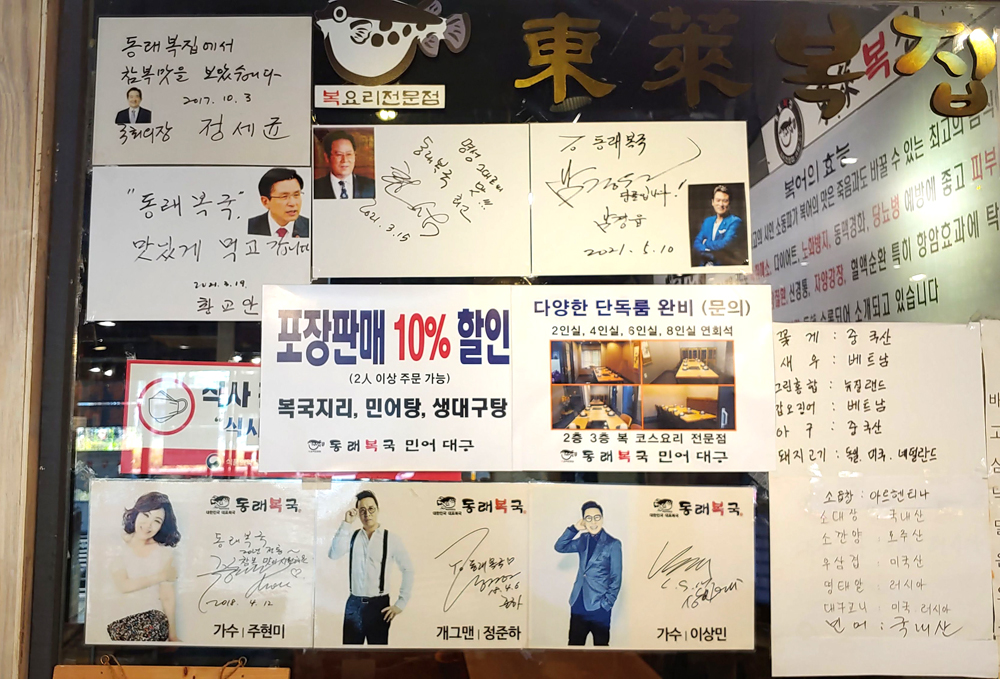 동래복집에서
참복맛을 보았습니다
2017. 10. 3
국회의장 정세균
복요리전문점
東萊복집
동래복국
2021. 3. 15
동래복국
2021. 5. 10
"동래복국"
맛있게 먹고 갑니다
황교안
포장판매 10% 할인
(2人 이상 주문 가능)
복국지리, 민어탕, 생대구탕
동래복국 민어 대구
다양한 단독룸 완비 (문의)
2인실, 4인실, 6인실, 8인실 연회석
2층 3층 복 코스요리 전문점
동래복국 민어 대구
복
복어의 효능
시인 소동파가 복어의 맛은 죽음과도 바꿀 수 있는 최고의
다이어트, 노화방지, 동맥경화, 당뇨병 예방에 좋고 피부
신경통, 자양강장, 혈액순환 특히 항암효과에 탁
소개되고 있습니다
식사
꽃게 : 중국산
새우 : 베트남
그린홍합 : 뉴질랜드
갑오징어 : 베트남
아구 : 중국산
돼지고기 : 독일, 미국, 네덜란드
소곱창 : 아르헨티나
소대창 : 국내산
소깐양 : 호주산
우삼겹 : 미국산
명태알 : 러시아
대구고니 : 미국, 러시아
민어 : 국내산
대한민국 대표복국
동래복국
동래복국
2018. 4. 12
가수 | 주현미
대한민국 대표복국
동래복국
동래복국
18. 4. 6
개그맨 | 정준하
대한민국 대표복국
동래복국
가수 | 이상민